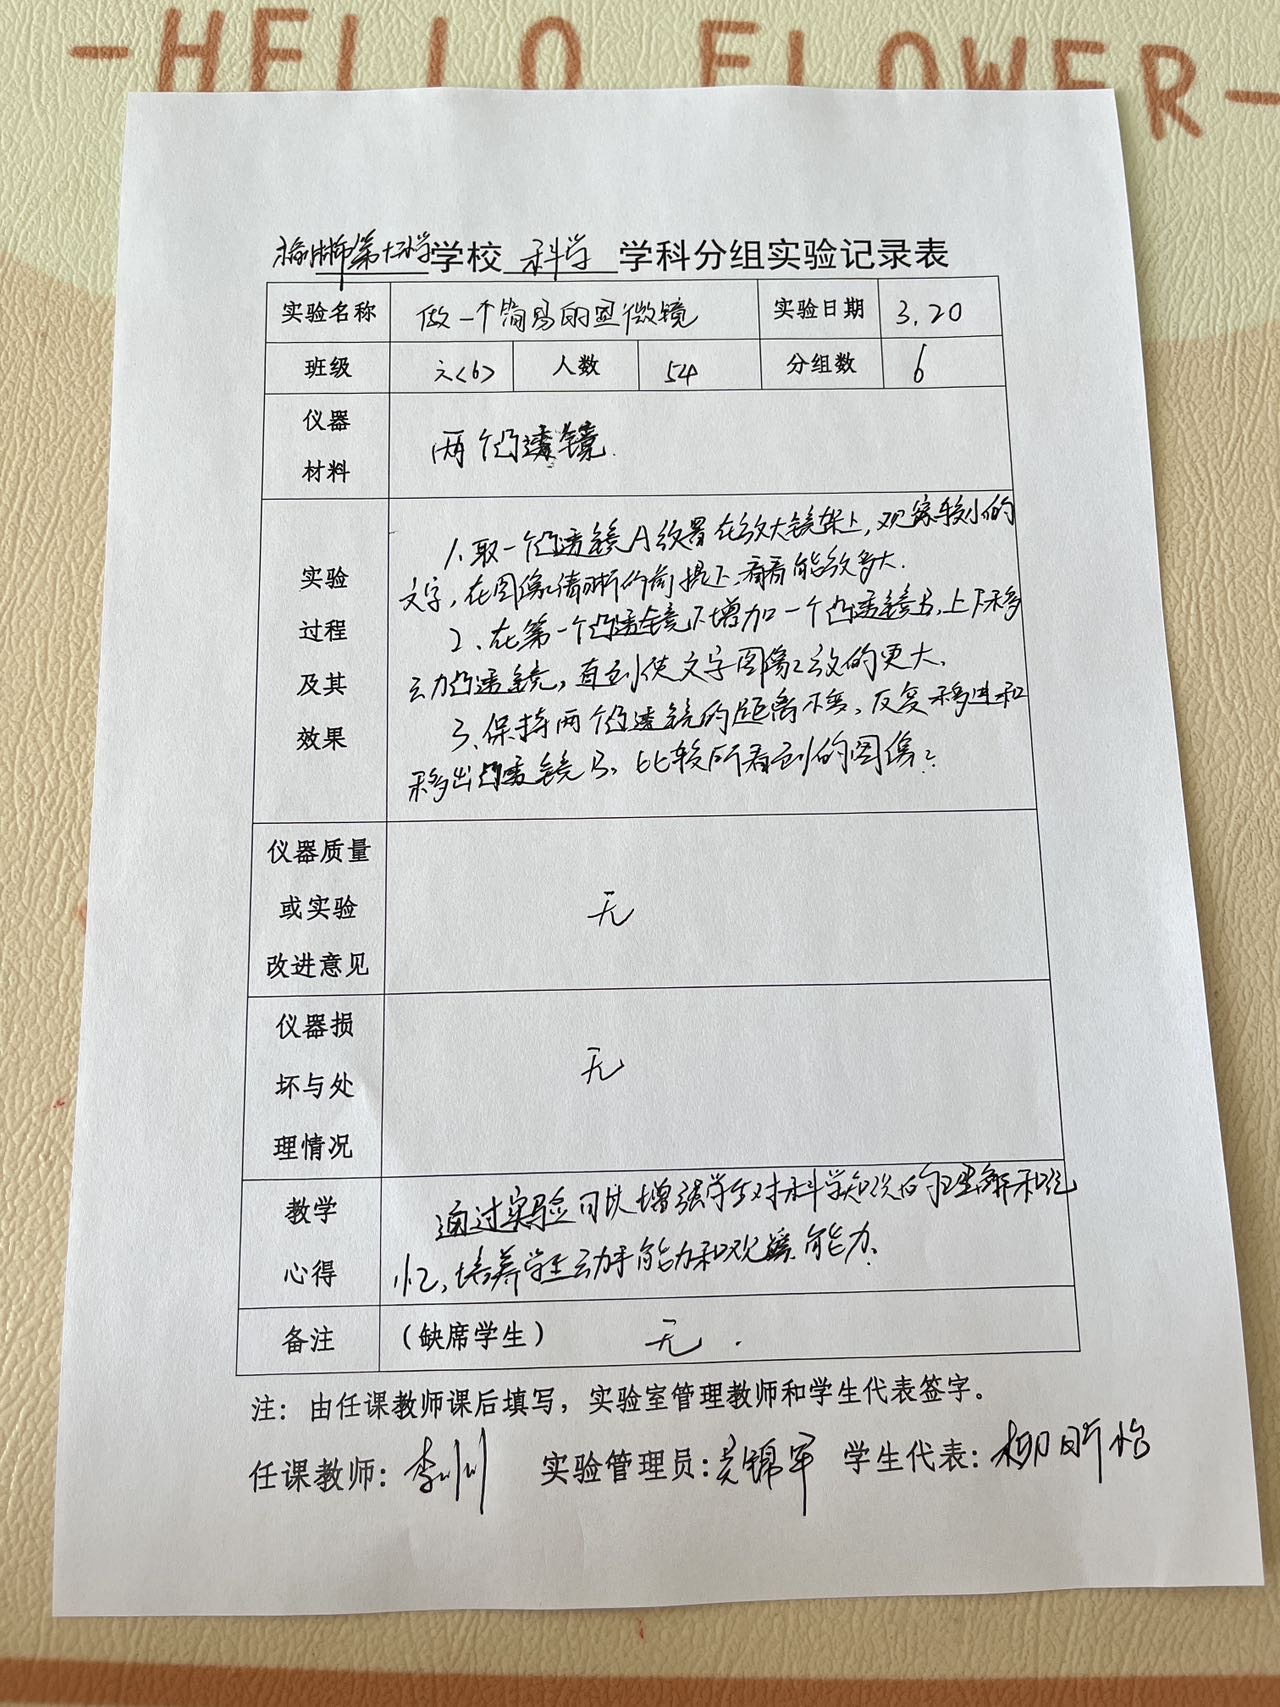 -HELLO FLOWER-
榆林市第十二小学学校 科学 学科分组实验记录表
实验名称 做一个简易的显微镜 实验日期 3.20
班级 六<6> 人数 54 分组数 6
仪器
材料
两个凸透镜.
实验
过程
及其
效果
1、取一个凸透镜A放置在放大镜架上,观察较小的
文字,在图像清晰的前提下,看看能放多大.
2、在第一个凸透镜下增加一个凸透镜B,上下移
动凸透镜,直到使文字图像放的更大.
3、保持两个凸透镜的距离不变,反复移进和
移出凸透镜B,比较所看到的图像?
仪器质量
或实验
改进意见
无
仪器损
坏与处
理情况
无
教学
心得
通过实验可以增强学生对科学知识的理解和记
忆,培养学生动手能力和观察能力.
备注 (缺席学生) 无.
注:由任课教师课后填写,实验室管理教师和学生代表签字。
任课教师: 李川川 实验管理员: 锦军 学生代表: 柳昕怡